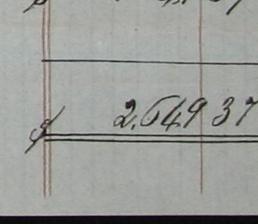 $ 2.649 37